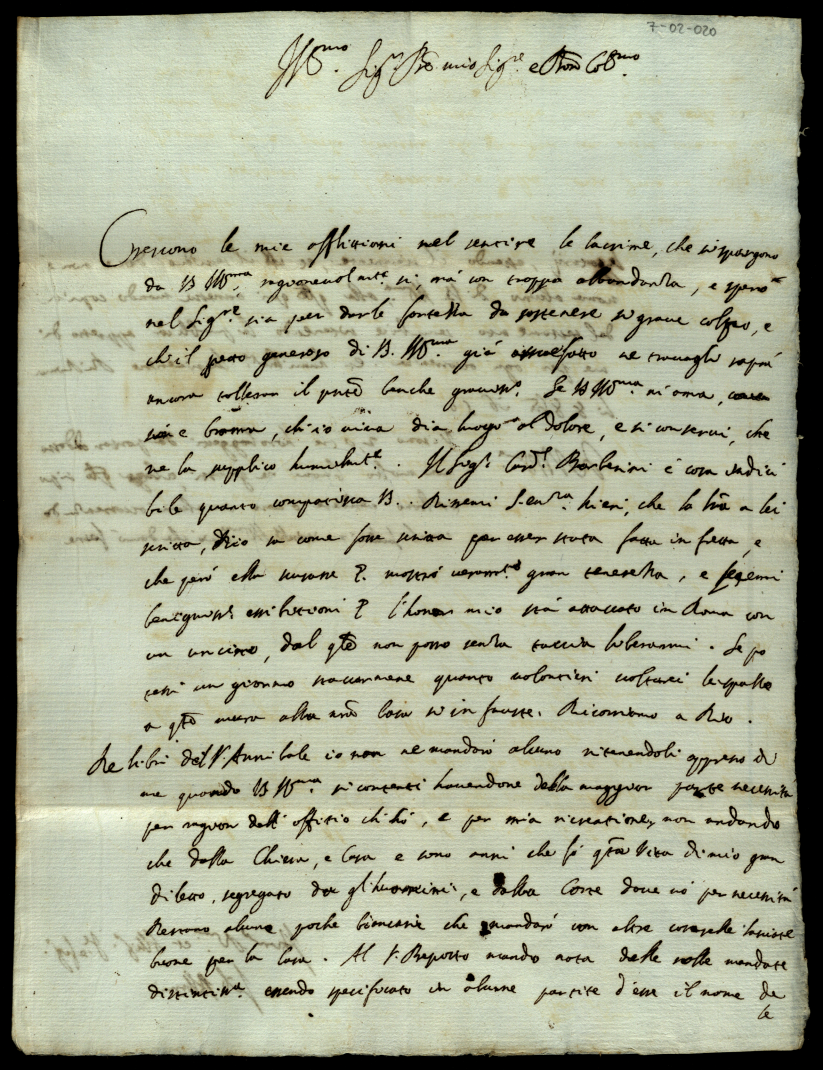 7-02-020
Ill.mo Sig.r P̃rõ mio Sig.re e P̃ron Col.mo
Crescono le mie afflittioni nel sentire le lacrime, che si spargono
da V.S. Ill.ma ragionevolm.te si, mà con troppa abbondanza, e spero
nel Sig.re sia per darle fortezza da sostenere si grave colpo, e
ch'il petto generoso di V.S. Ill.ma già assuefatto ne travagli saprà
ancora tollerar il p̃ntẽ benche graviss.o. Se V.S. Ill.ma mi ama,
e brama, ch'io viva dia luogo al dolore, e si conservi, che
ne la supplico humilm.te. Il Sig.r Card.l Barberini è cosa indici
bile quanto compatisca V.S. Dissemi S. Em.za hieri, che la lr̃a a lei
scritta, Dio sa come fosse scritta per esser stata fatta in fretta, e
che però ella scusasse &. mostrò veram.te gran tenerezza, e fecemi
benigniss.e essibitioni & l'honor mio stà attaccato in Roma con
un uncino, dal q̃le non posso senza taccia liberarmi. Se po
tessi un giorno staccarmene quanto volontieri voltarei le spalle
a q̃tã alla nrã Casa si infausta. Ricorriamo a Dio.
De libri del S.r Annibale io non ne mandarò alcuno ritenendoli appresso di
me quando V.S. Ill.ma si contenti havendone della maggior parte necessità
per ragion dell' offitio ch'hò, e per mia ricreatione, non andando
che dalla Chiesa, e Casa e sono anni che fò q̃ta Vita di mio gran
diletto, segregato da gl'huomini, e dalla Corte dove vò per necessità
Restano alcune poche biancarie che mandarò con altre cosarelle
buone per la Casa. Al S.r Raporto mando nota delle robbe mandate
distintiss.a essendo specificato in alcune partite d'esse il nome de
le